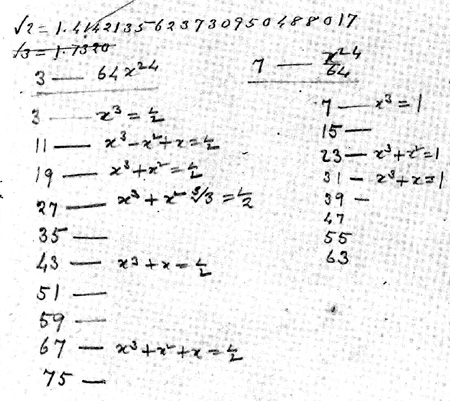 √2 = 1.4142135623730950488017
√3 = 1.7320
3 — 64x²⁴
3 — x³ = ½
11 — x³-x²+x = ½
19 — x³+x² = ½
27 — x³+x² ∛3 = ½
35 —
43 — x³+x = ½
51 —
59 —
67 — x³+x²+x = ½
75 —
7 — x²⁴/64
7 — x³ = 1
15 —
23 — x³+x² = 1
31 — x³+x = 1
39 —
47
55
63